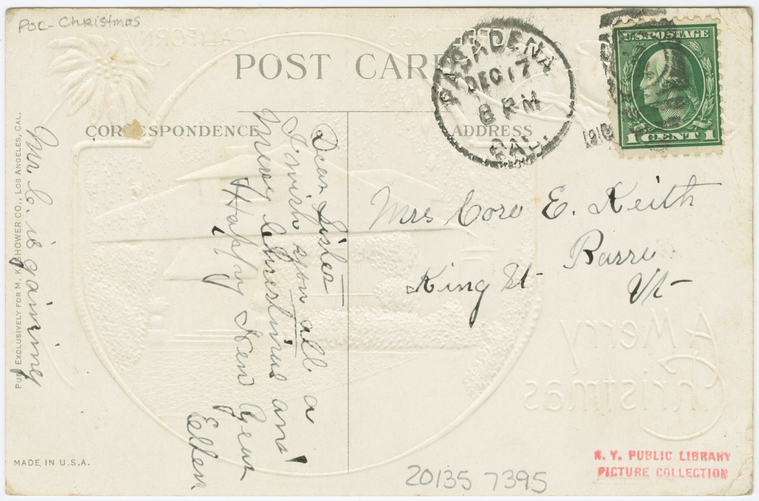 POC-Christmas
POST CARD
CORRESPONDENCE
ADDRESS
PASADENA
DEC 17
8 PM
CAL.
U.S. POSTAGE
1 CENT 1
Dear Sister
I wish you all a
Merry Christmas and
Happy New Year
Ellen
Mr C. is gaining
Mrs Cora E. Keith
King St Barre
Vt
PUB. EXCLUSIVELY FOR M. KASHOWER CO., LOS ANGELES, CAL.
MADE IN U.S.A.
CALIFORNIA
A Merry
Christmas
20135 7395
N. Y. PUBLIC LIBRARY
PICTURE COLLECTION